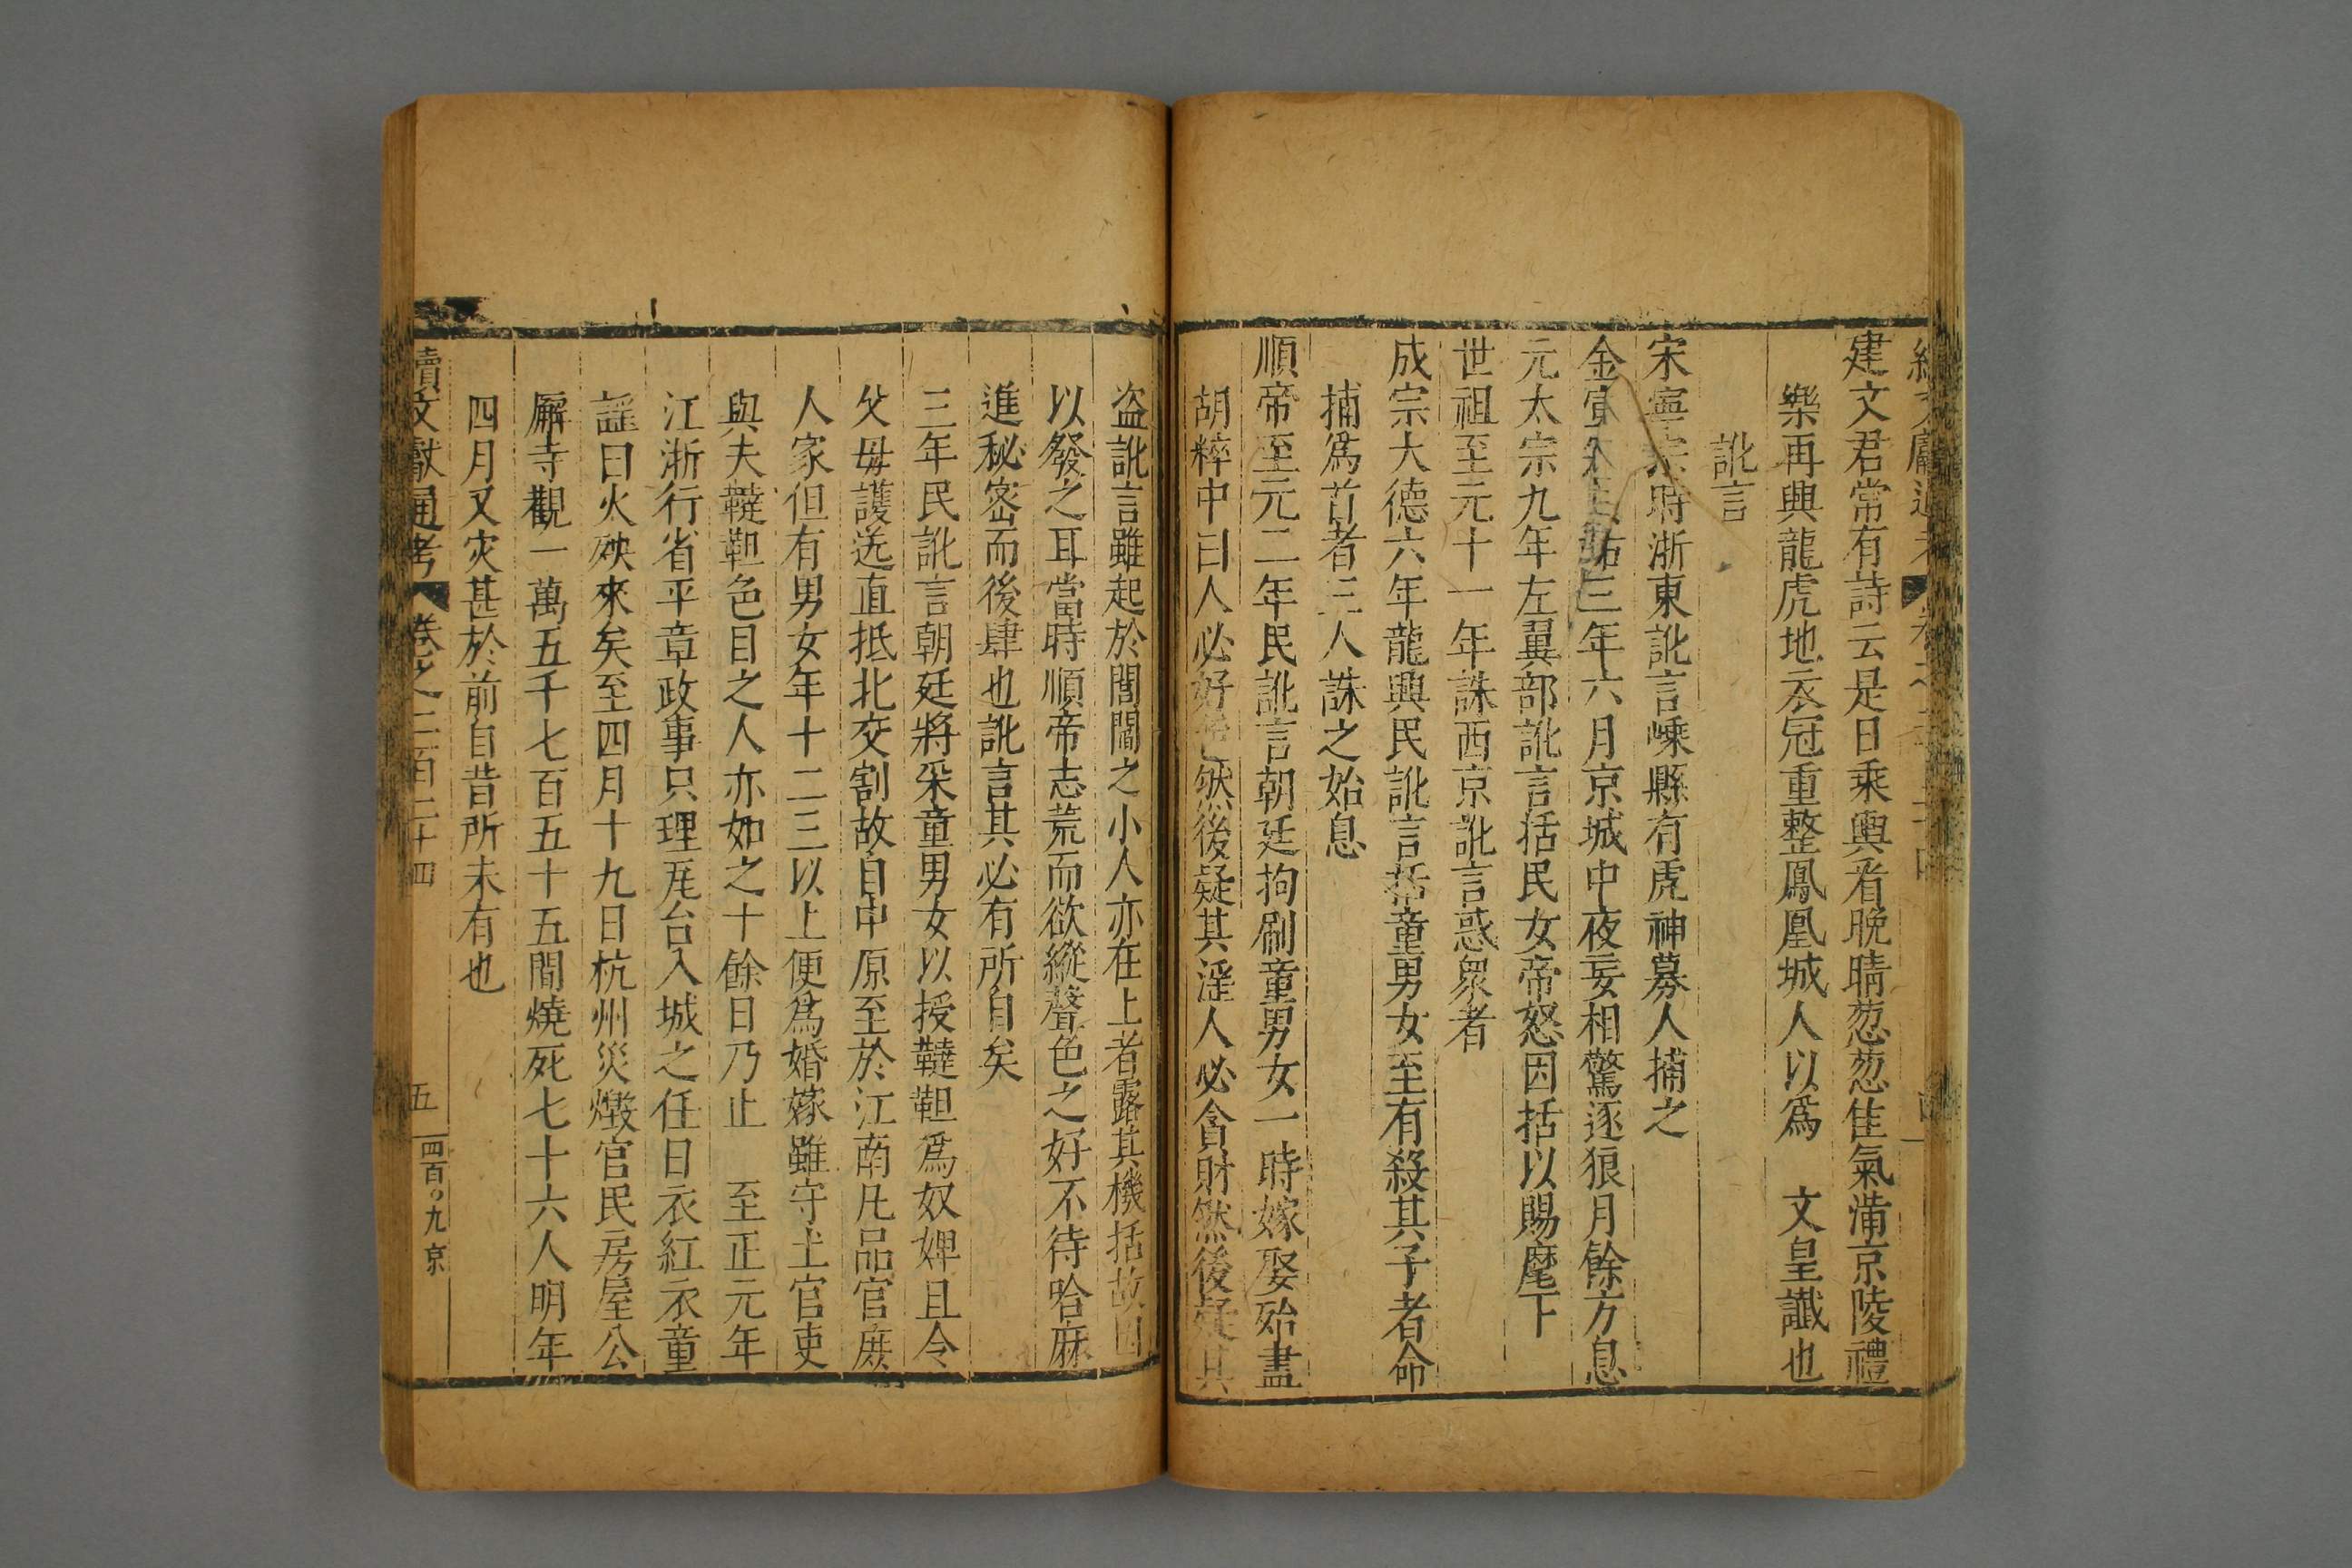 建文君常有詩云是日乘輿看晚晴葱葱佳氣滿京陵禮
樂再興龍虎地衣冠重整鳳凰城人以爲 文皇讖也
訛言
宋寧宗時浙東訛言嵊縣有虎神募人捕之
金宣宗貞祐三年六月京城中夜妄相驚逐狼月餘方息
元太宗九年左翼部訛言括民女帝怒因括以賜麾下
世祖至元十一年誅西京訛言惑衆者
成宗大德六年龍興民訛言括童男女至有殺其子者命
捕爲首者三人誅之始息
順帝至元二年民訛言朝廷拘刷童男女一時嫁娶殆盡
胡粹中曰人必好色然後疑其淫人必貪財然後疑其
盗訛言雖起於閭閻之小人亦在上者露其機括故因
以發之耳當時順帝志荒而欲縱聲色之好不待哈麻
進秘密而後肆也訛言其必有所自矣
三年民訛言朝廷將采童男女以授韃靼爲奴婢且令
父母護送直抵北交割故自中原至於江南凡品官庶
人家但有男女年十二三以上便爲婚嫁雖守土官吏
與夫韃靼色目之人亦如之十餘日乃止 至正元年
江浙行省平章政事只理瓦台入城之任日衣紅衣童
謡曰火殃來矣至四月十九日杭州災燬官民房屋公
廨寺觀一萬五千七百五十五間燒死七十六人明年
四月又灾甚於前自昔所未有也
續文獻通考 卷之二百二十四 五 四百〇九 京